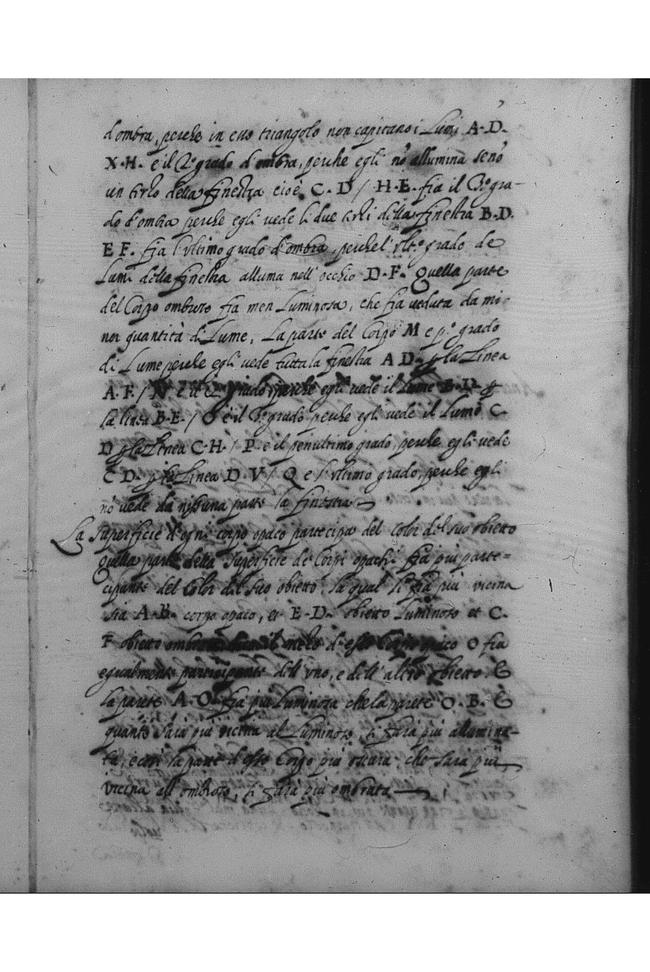 d'ombra, perche in esso triangolo non capitano i Lumi A·D·
X·H· e il 2º grado d'ombra, perche egli nō allumina senō
un terzo della finestra cioè C·D / H·E· fia il 3º gra-
do d'ombra perche egli vede li due terzi della finestra B·D·
E F· fia l'vltimo grado d'ombra, perche l'vltº grado de
Lume della finestra alluma nell'occhio D·F· Quella parte
del Corpo ombroso fia men Luminosa, che fia veduta da mi-
nor quantità di Lume, La parte del Corpo M e pº grado
di Lume perche egli vede tutta la finestra A D· p la Linea
A·F·/ N e il 2º grado, perche egli vede il Lume B·D· p
la linea B·E·/ O e il 3º grado perche egli vede il Lume C·
D p la Linea C·H·/ P e il penultimo grado, perche egli vede
C D· p la Linea D·V/ Q e l'vltimo grado, perche egli
nō vede da nissuna parte la finestra
La Superficie d'ogni corpo opaco partecipa del color del suo obietto
Quella parte della Superficie de Corpi opachi fia piu parte=
cipante del Color del suo obietto, la qual li fia piu vicina
sia A·B· corpo opaco, et E·D· obietto Luminoso et C·
F obietto ombroso il mezo d'esso Corpo opaco O fia
egualmente participante dell'vno, e dell'altro obietto. E
la parete A·O· fia piu Luminosa che la parete O·B· E
quanto sara piu vicina al Luminoso, si fara piu allumina-
ta, e cosi la parte d'esso Corpo piu oscura che sara piu
vicina all'ombroso, si fara piu ombrata